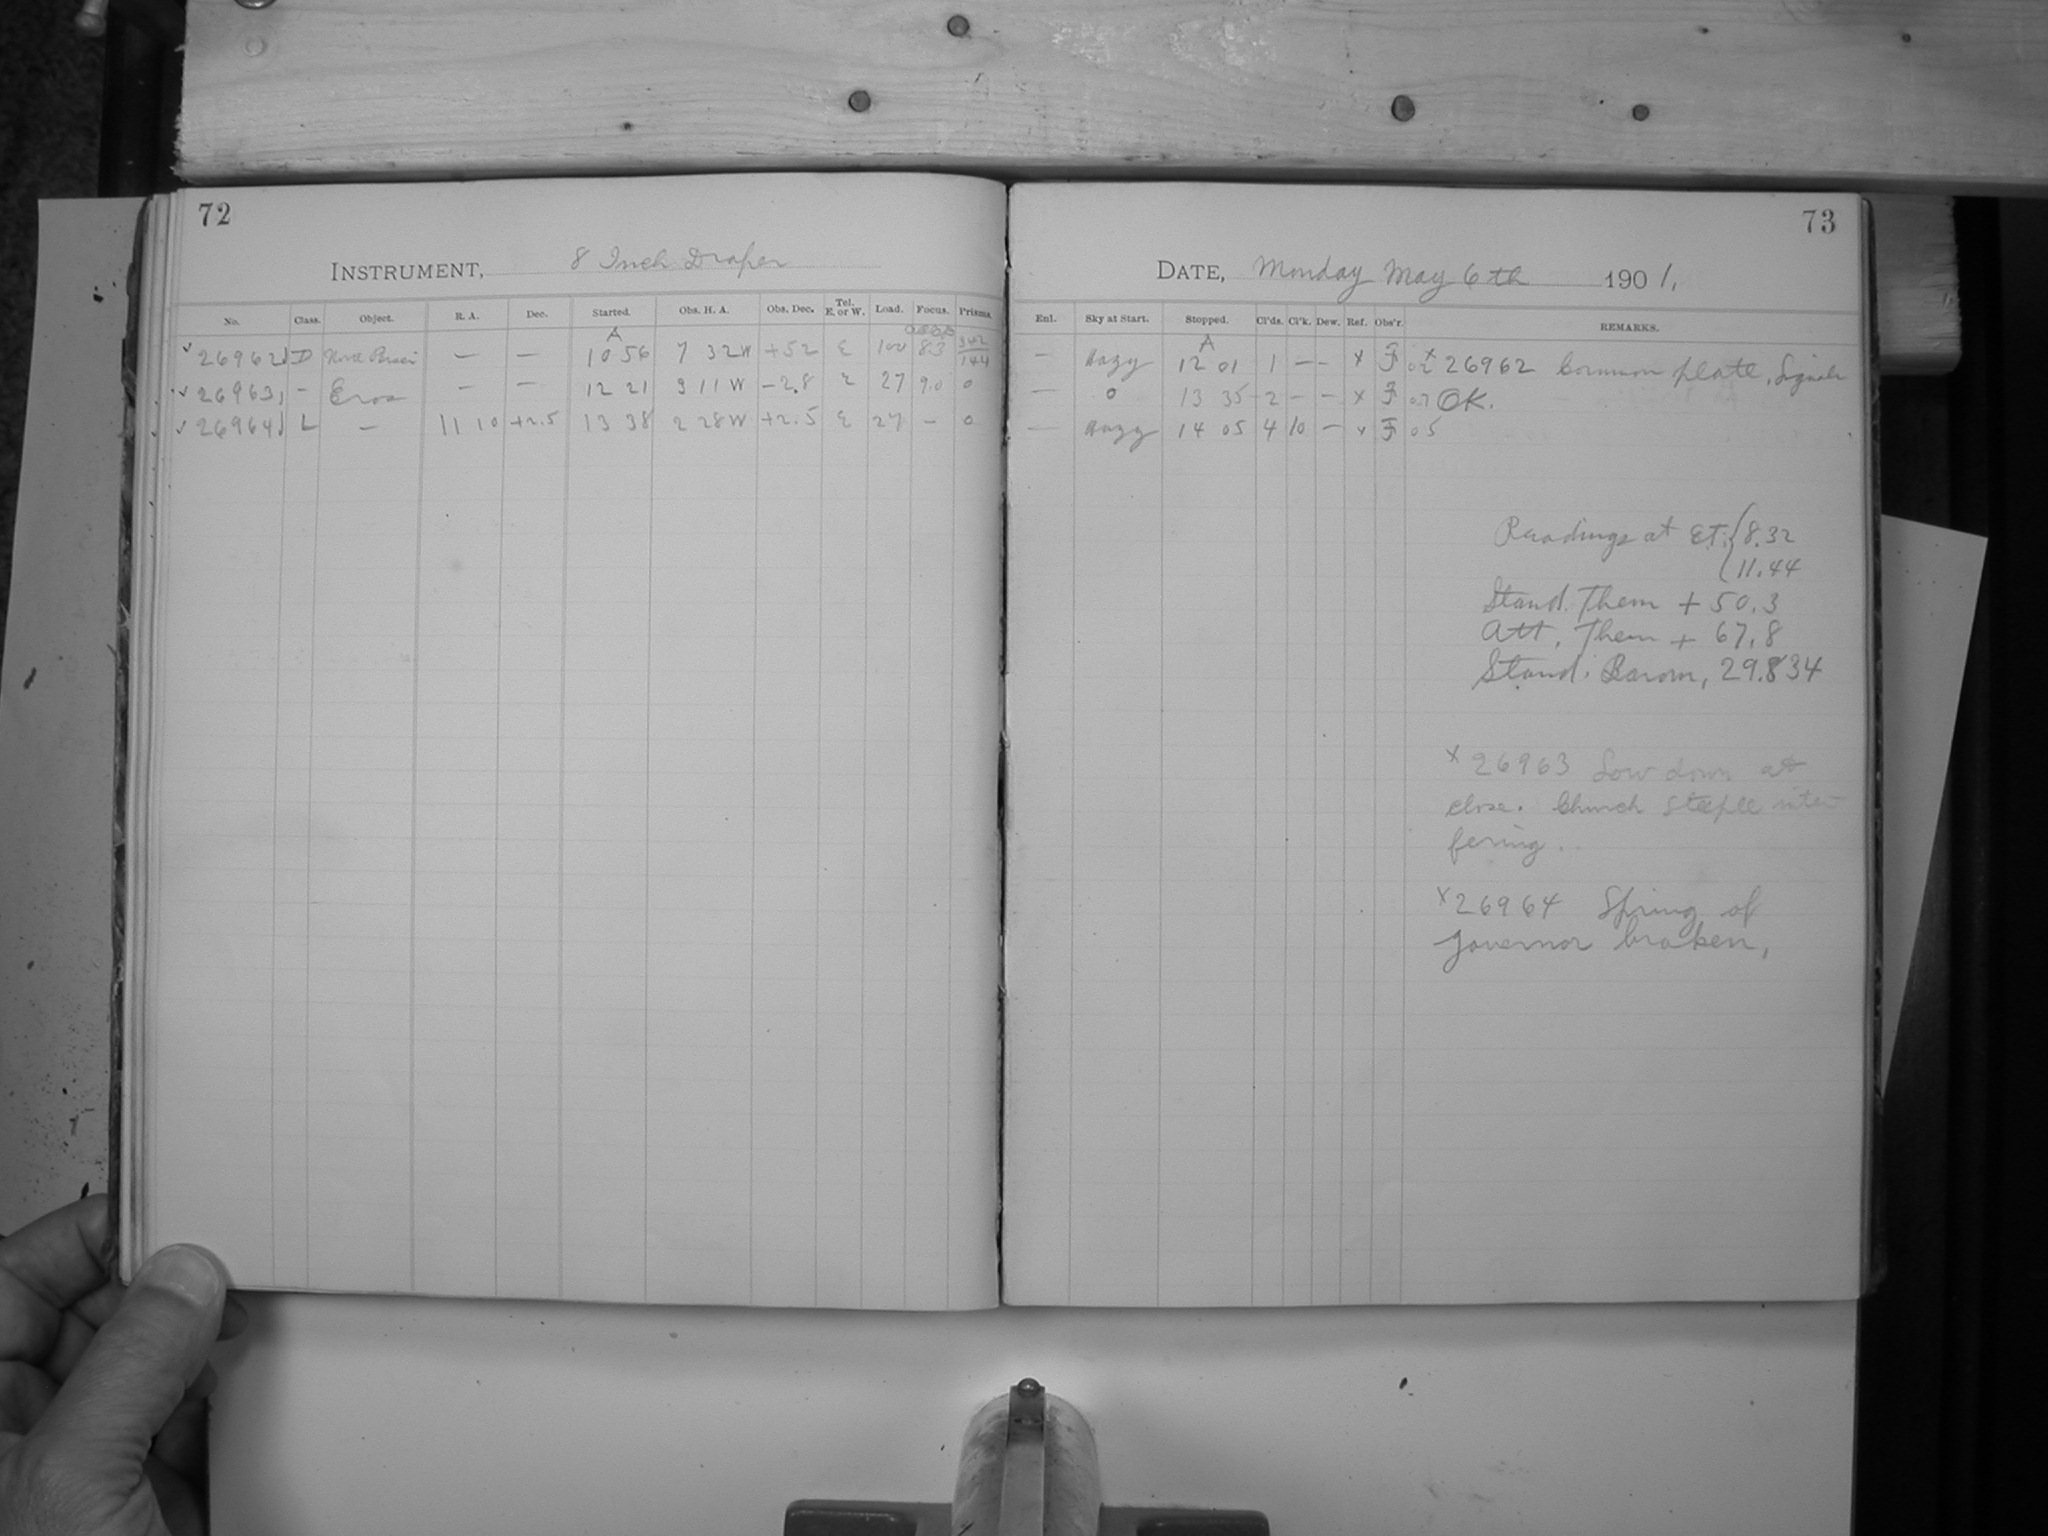 72
INSTRUMENT, 8 Inch Draper
No. Class. Object. R. A. Dec. Started. Obs. H. A. Obs. Dec. Tel. E. or W. Load. Focus. Prisms.
A
26962 D Nova Persei — — 10 56 7 32 W +52 E 8.3 144
26963 – Eros — — 12 21 3 11 W −2.8 E 27 9.0 0
26964 L — 11 10 +2.5 13 38 2 28 W +2.5 E 27 – 0
73
DATE, Monday May 6th 1901.
Enl. Sky at Start. Stopped. Cl'ds. Cl'k. Dew. Ref. Obs'r. REMARKS.
A
— Hazy 12 01 1 — — x F x 26962 Common plate, Signals
— 0 13 35 2 – – x F OK.
— Hazy 14 05 4 10 – x F 05
Readings at ET. { 8.32
11.44
Stand. Them + 50.3
Att. Them + 67.8
Stand. Barom, 29.834
x 26963 Low down at
close. Church steeple inter
fering.
x 26964 Spring of
governor broken,